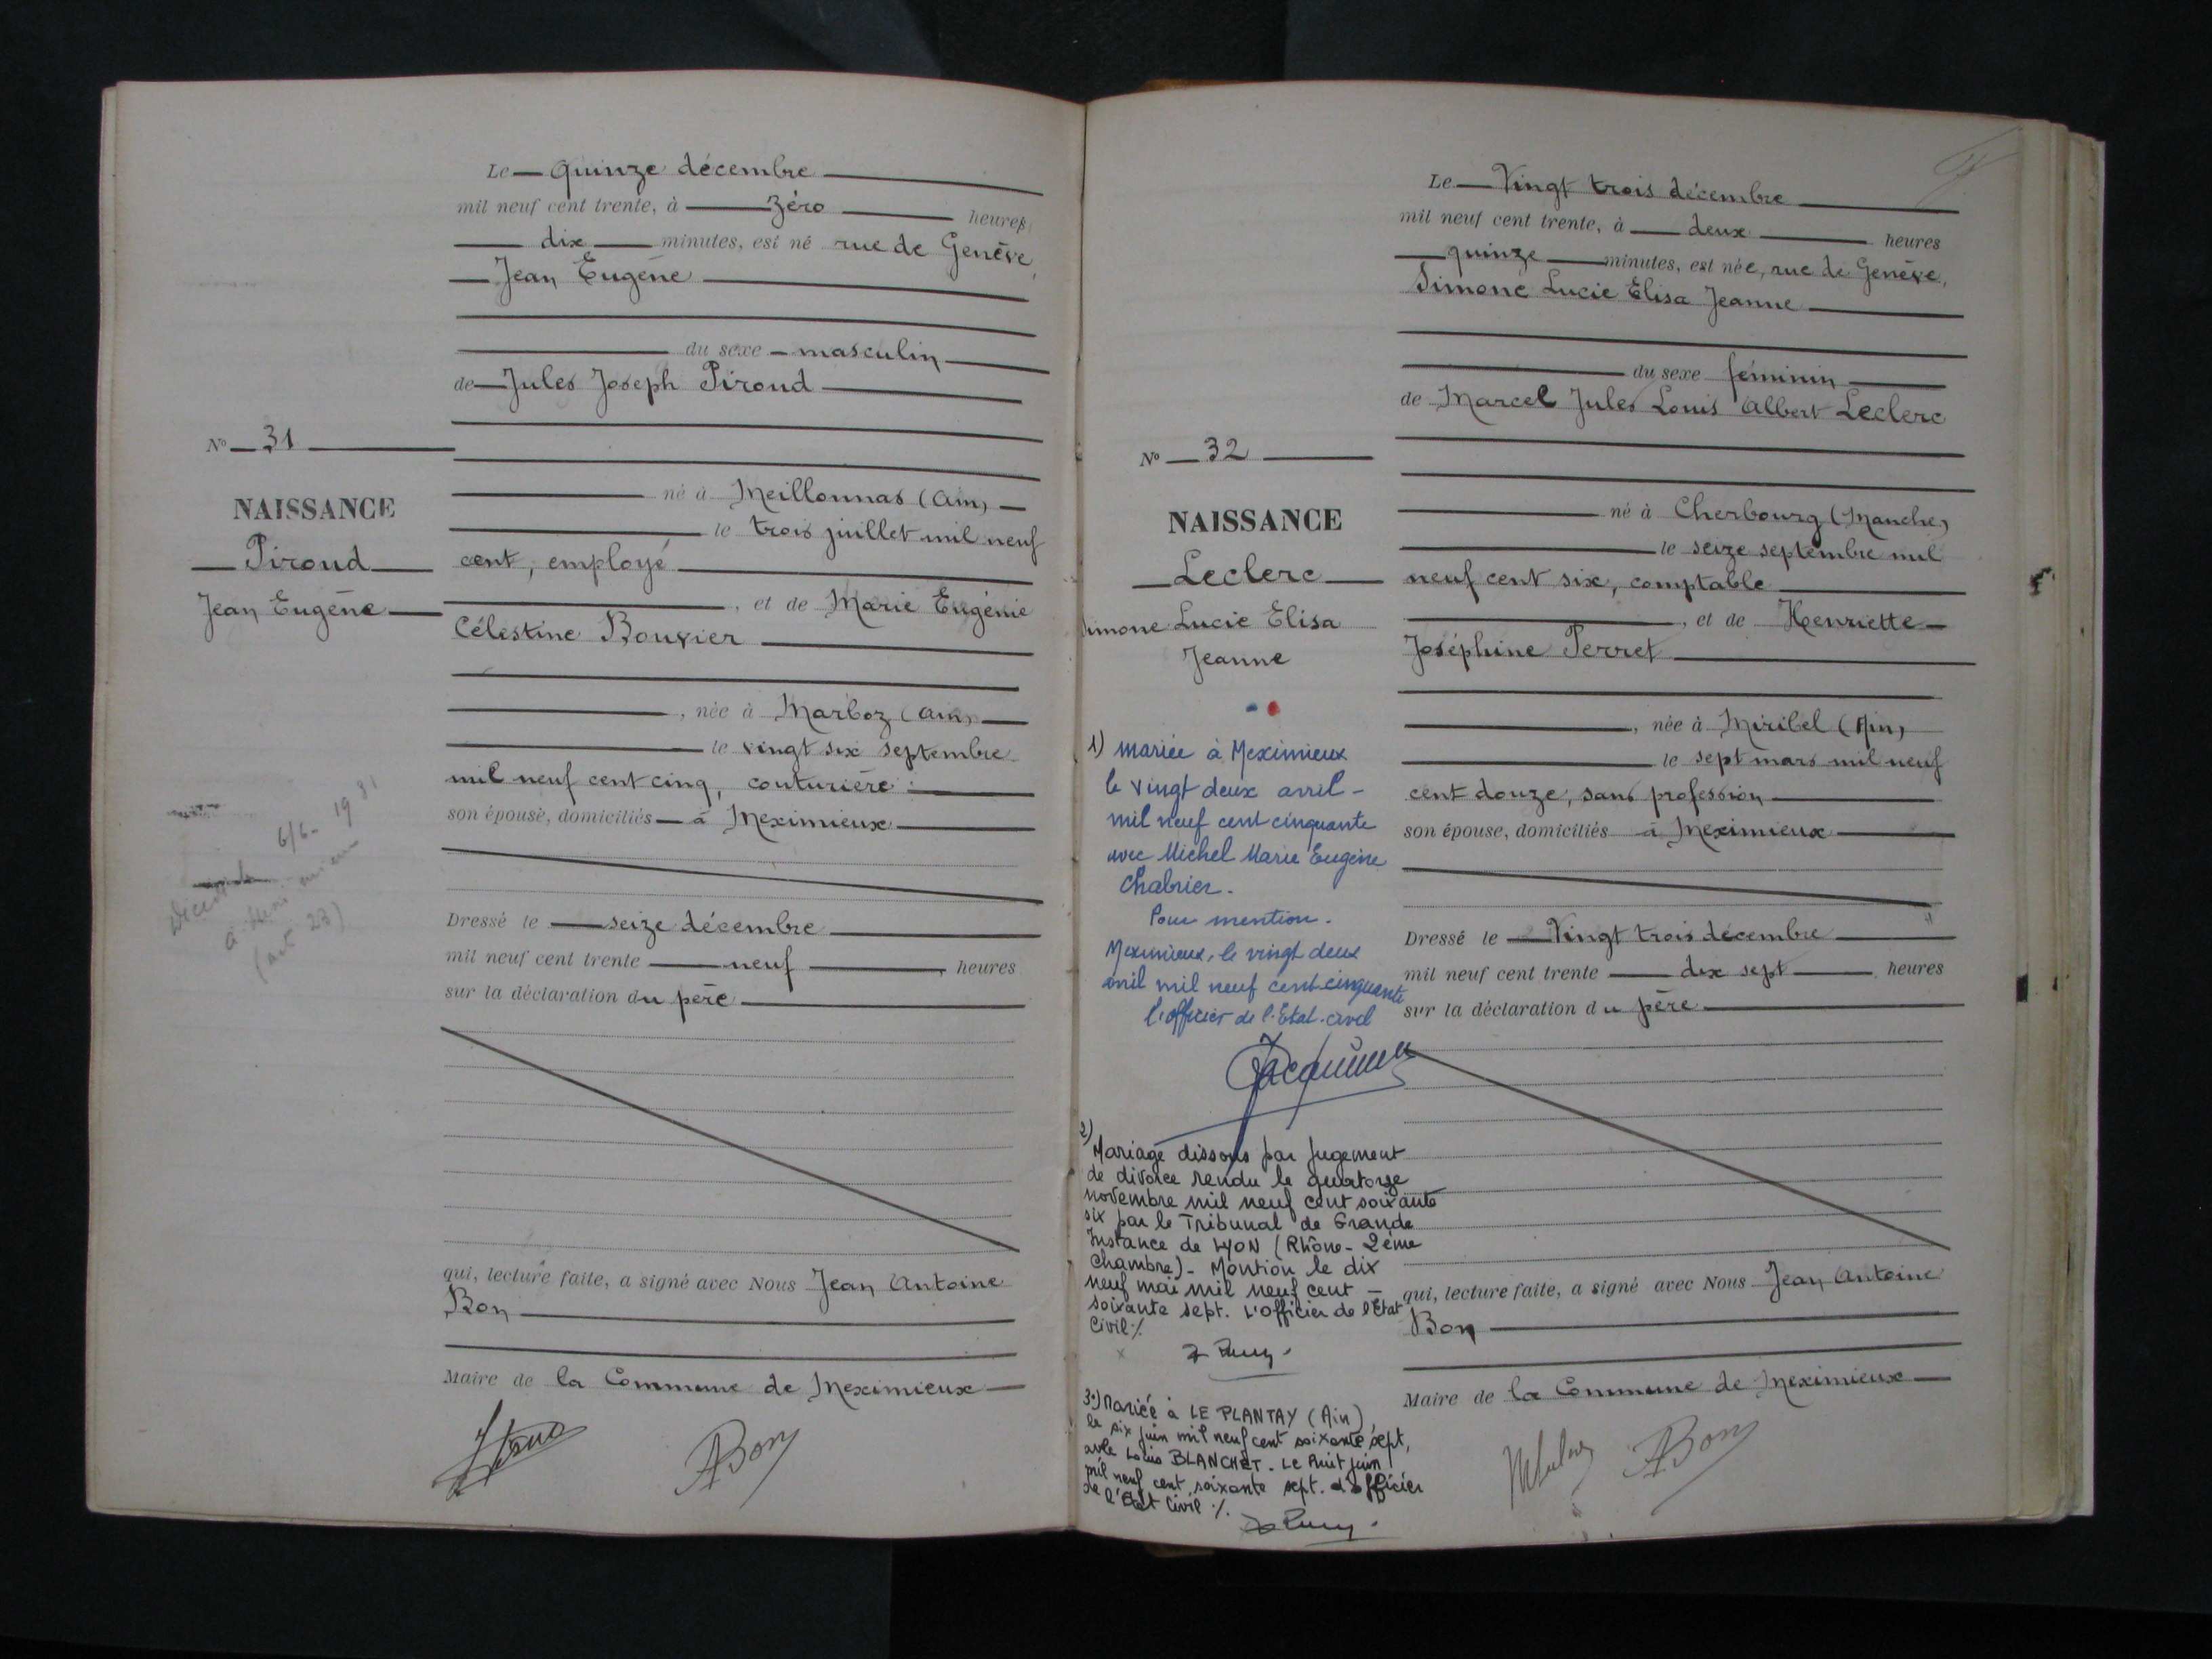 Le — quinze décembre
mil neuf cent trente, à — zéro — heures
— dix — minutes, est né rue de Genève,
— Jean Eugène —
— du sexe — masculin —
de — Jules Joseph Piroud —
N° — 31 —
— né à Meillonnas (Ain) —
NAISSANCE
— le trois juillet mil neuf
— Piroud —
cent, employé —
Jean Eugène —
—, et de Marie Eugénie
Célestine Bouvier —
—, née à Marboz (Ain) —
— le vingt six septembre
mil neuf cent cinq, couturière —
son épouse, domiciliés — à Meximieux —
6/6- 1981
(acte 23)
Dressé le — seize décembre —
mil neuf cent trente — neuf —, heures
sur la déclaration du père —
qui, lecture faite, a signé avec Nous Jean Antoine
Bon —
Maire de la Commune de Meximieux —
ABon
Le — Vingt trois décembre —
mil neuf cent trente, à — deux — heures
— quinze — minutes, est née, rue de Genève,
Simone Lucie Elisa Jeanne —
— du sexe féminin —
de Marcel Jules Louis Albert Leclerc
N° — 32 —
— né à Cherbourg (Manche)
NAISSANCE
— le seize septembre mil
— Leclerc —
neuf cent six, comptable —
Simone Lucie Elisa
Jeanne
—, et de Henriette —
Joséphine Perret —
—, née à Miribel (Ain)
— le sept mars mil neuf
cent douze, sans profession —
son épouse, domiciliés à Meximieux —
Dressé le — Vingt trois décembre —
mil neuf cent trente — dix sept — heures
sur la déclaration du père —
qui, lecture faite, a signé avec Nous Jean Antoine
Bon —
Maire de la Commune de Meximieux —
ABon
1) mariée à Meximieux
le vingt deux avril -
mil neuf cent cinquante
avec Michel Marie Eugène
Chabrier.
Pour mention.
Meximieux, le vingt deux
avril mil neuf cent cinquante
l'officier de l'Etat-civil
2)
Mariage dissous par jugement
de divorce rendu le quatorze
novembre mil neuf cent soixante
six par le Tribunal de Grande
Instance de LYON (Rhône - 2ème
Chambre) - Mention le dix
neuf mai mil neuf cent —
soixante sept. L'Officier de l'Etat
Civil ./.
3°) Mariée à LE PLANTAY (Ain),
le six juin mil neuf cent soixante sept,
avec Louis BLANCHET. Le huit juin
mil neuf cent soixante sept. L'Officier
de l'Etat Civil ./.